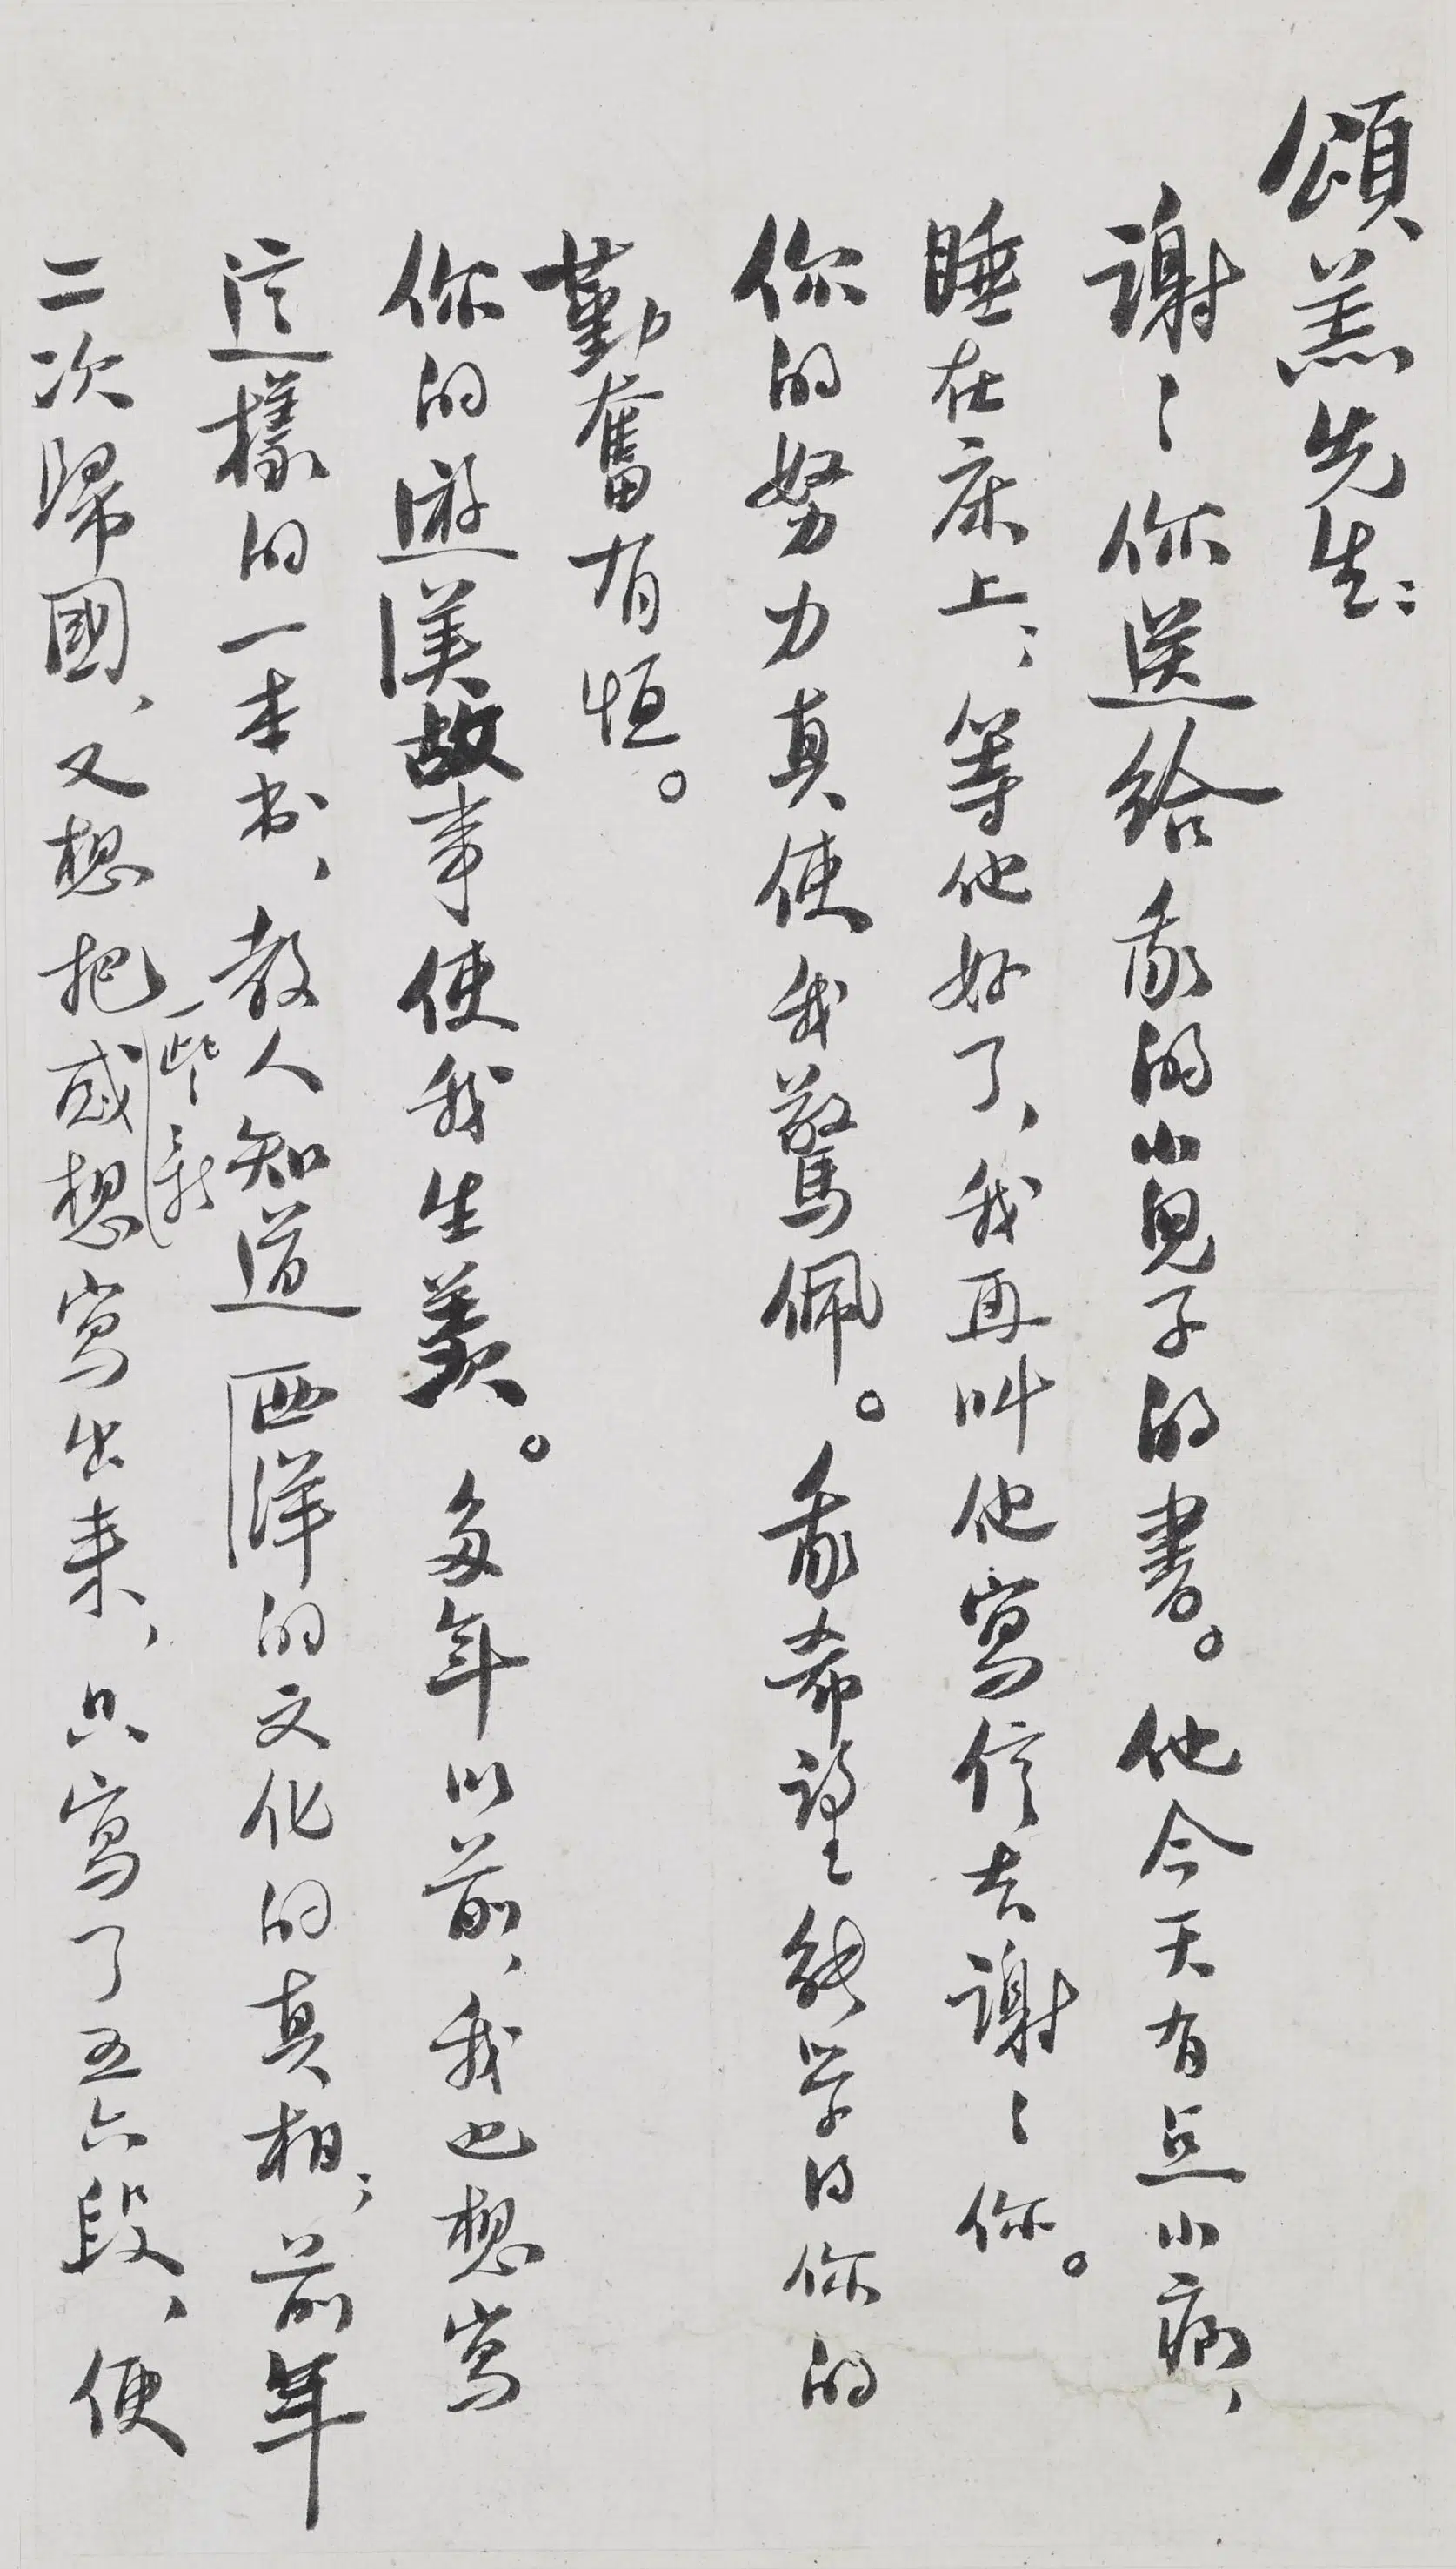 頌羔先生：
謝〻你送給我的小兒子的書。他今天有点小病，
睡在床上；等他好了，我再叫他寫信去謝〻你。
你的努力真使我驚佩。我希望能学得你的
勤奮有恒。
你的遊美故事使我生羨。多年以前，我也想寫
這樣的一本书，教人知道西洋的文化的真相；前年
二次歸國，又想把一些感想寫出来，只寫了五六段，便